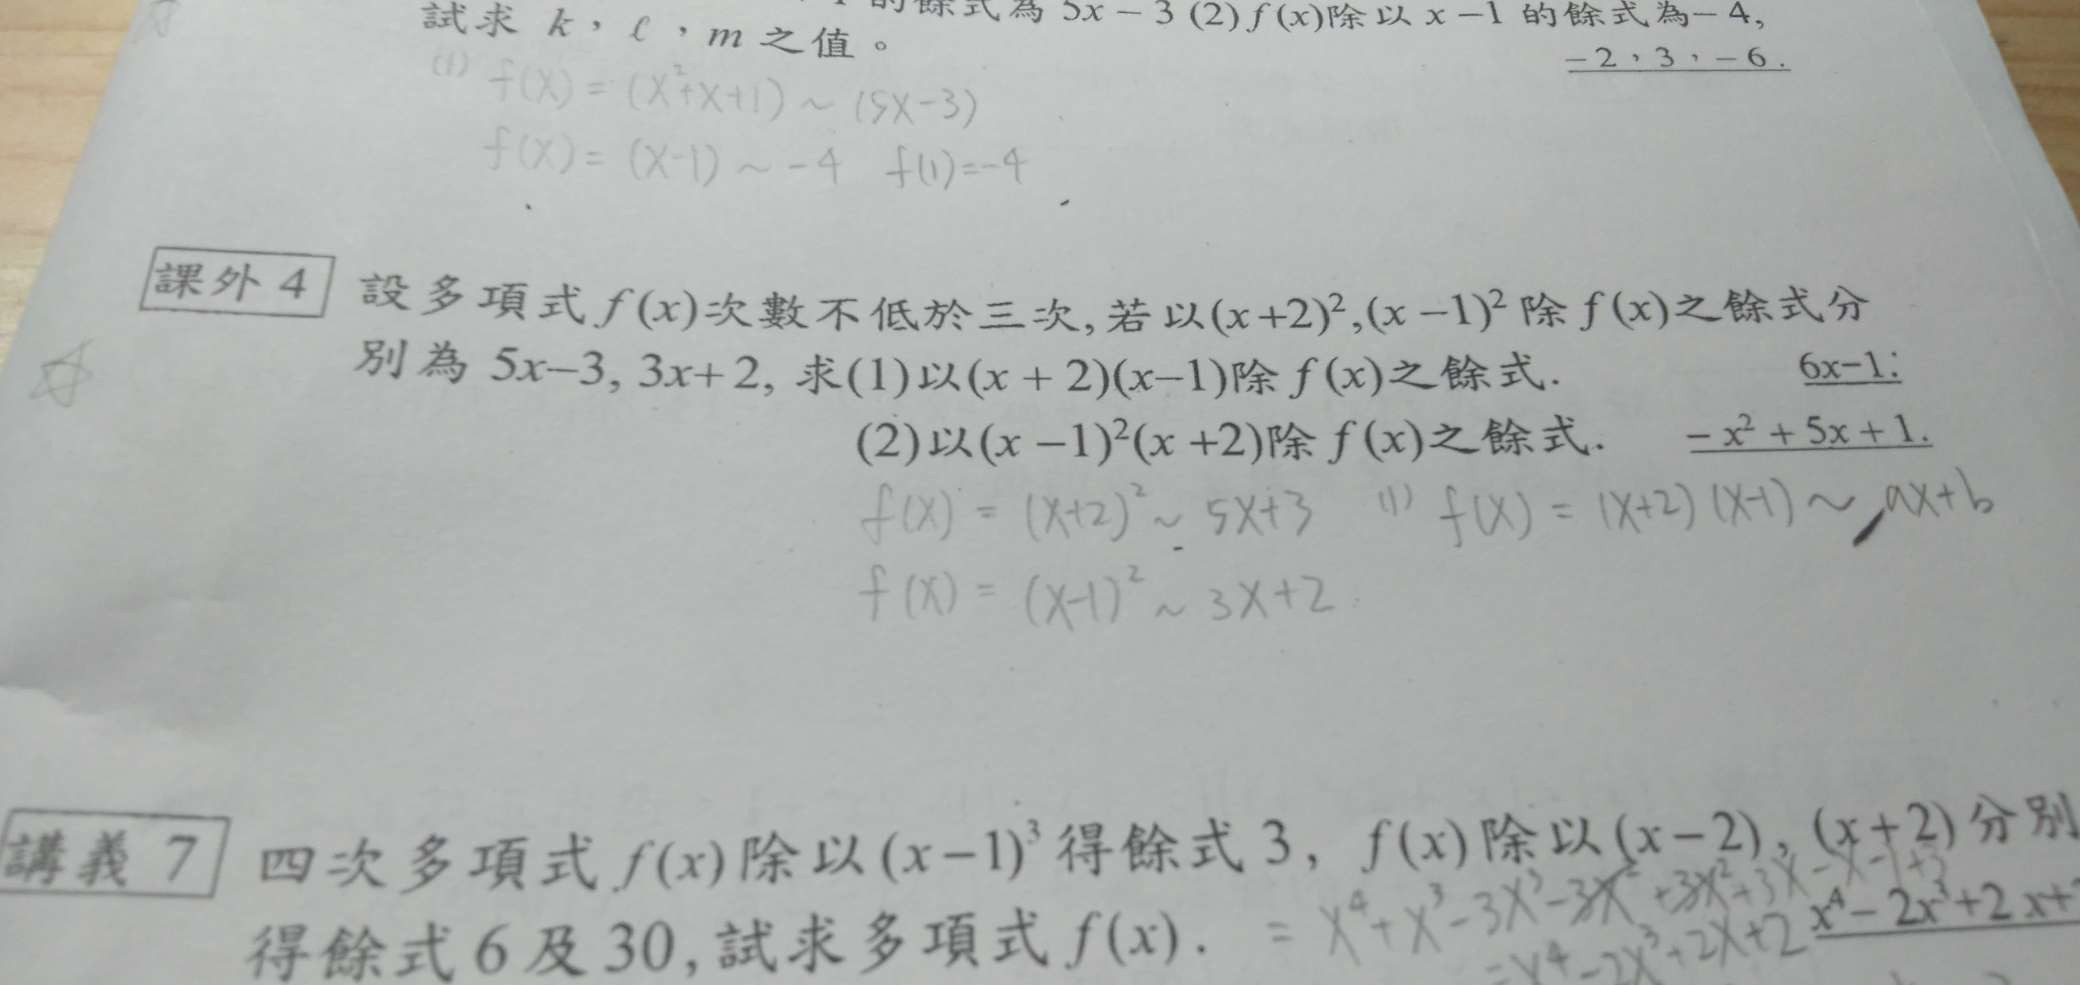 的餘式為 5x − 3 (2) f(x)除以 x −1 的餘式為− 4,
試求 k，ℓ，m 之值。
−2，3，−6.
(1) f(x) = (x²+x+1) ~ (5x−3)
f(x) = (x-1) ~ -4 f(1)=-4
課外 4 設多項式 f(x)次數不低於三次, 若以(x+2)²,(x −1)² 除 f(x)之餘式分
別為 5x−3, 3x+2, 求(1)以(x + 2)(x−1)除 f(x)之餘式. 6x−1:
(2)以(x −1)²(x +2)除 f(x)之餘式. − x² + 5x + 1.
f(x) = (x+2)² ~ 5x+3 (1) f(x) = (x+2)(x-1) ~ ax+b
f(x) = (x-1)² ~ 3x+2
講義 7 四次多項式 f(x)除以(x−1)³得餘式 3, f(x)除以(x−2), (x+2)分別
得餘式 6 及 30, 試求多項式 f(x). x⁴−2x³+2x+
= x⁴+x³-3x³-3x²+3x²+3x-x-1+3
=x⁴-2x³+2x+2